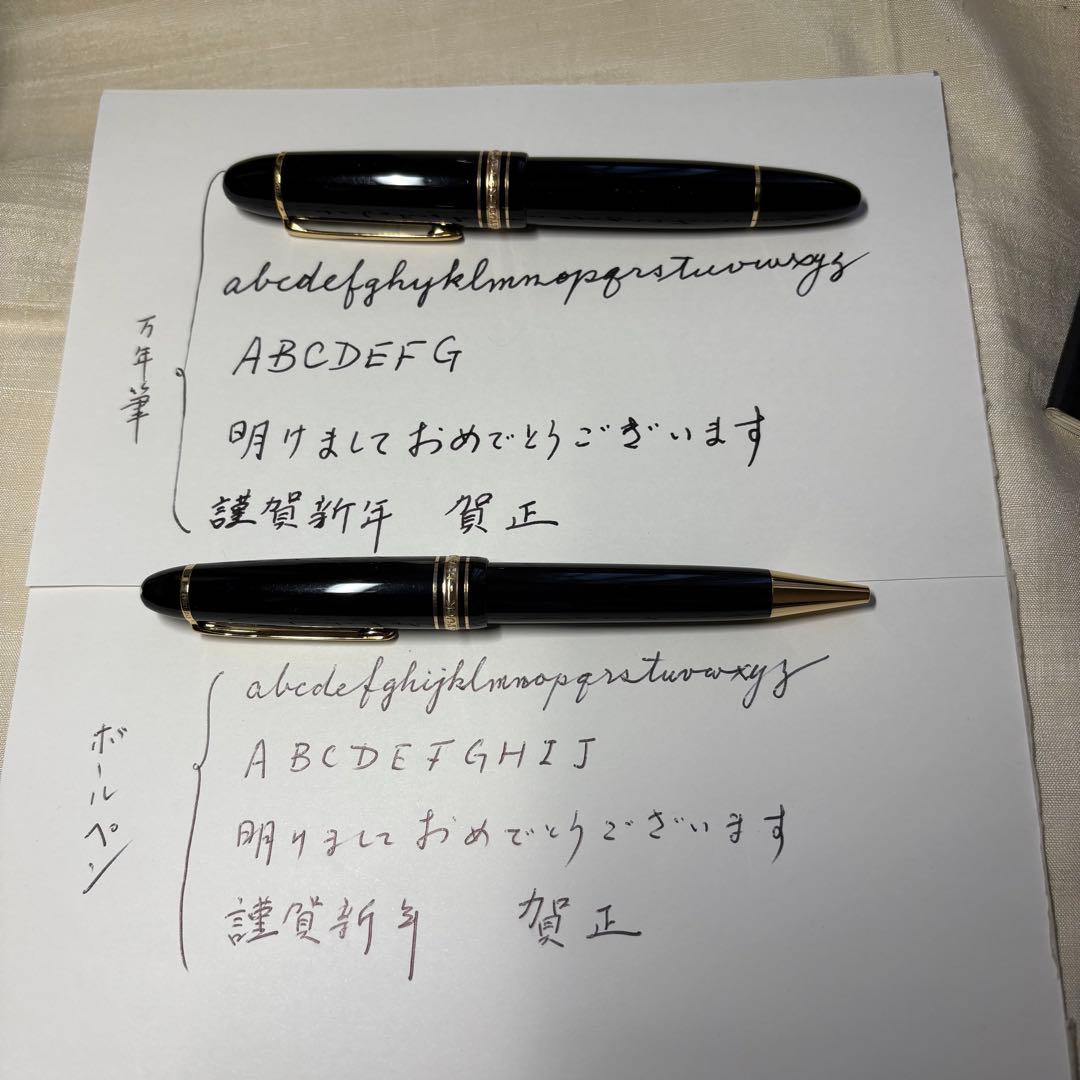 万年筆
abcdefghyklmnopqrstuvwxyz
ABCDEFG
明けましておめでとうございます
謹賀新年 賀正
ボールペン
abcdefghijklmnopqrstuvwxyz
ABCDEFGHIJ
明けましておめでとうございます
謹賀新年 賀正